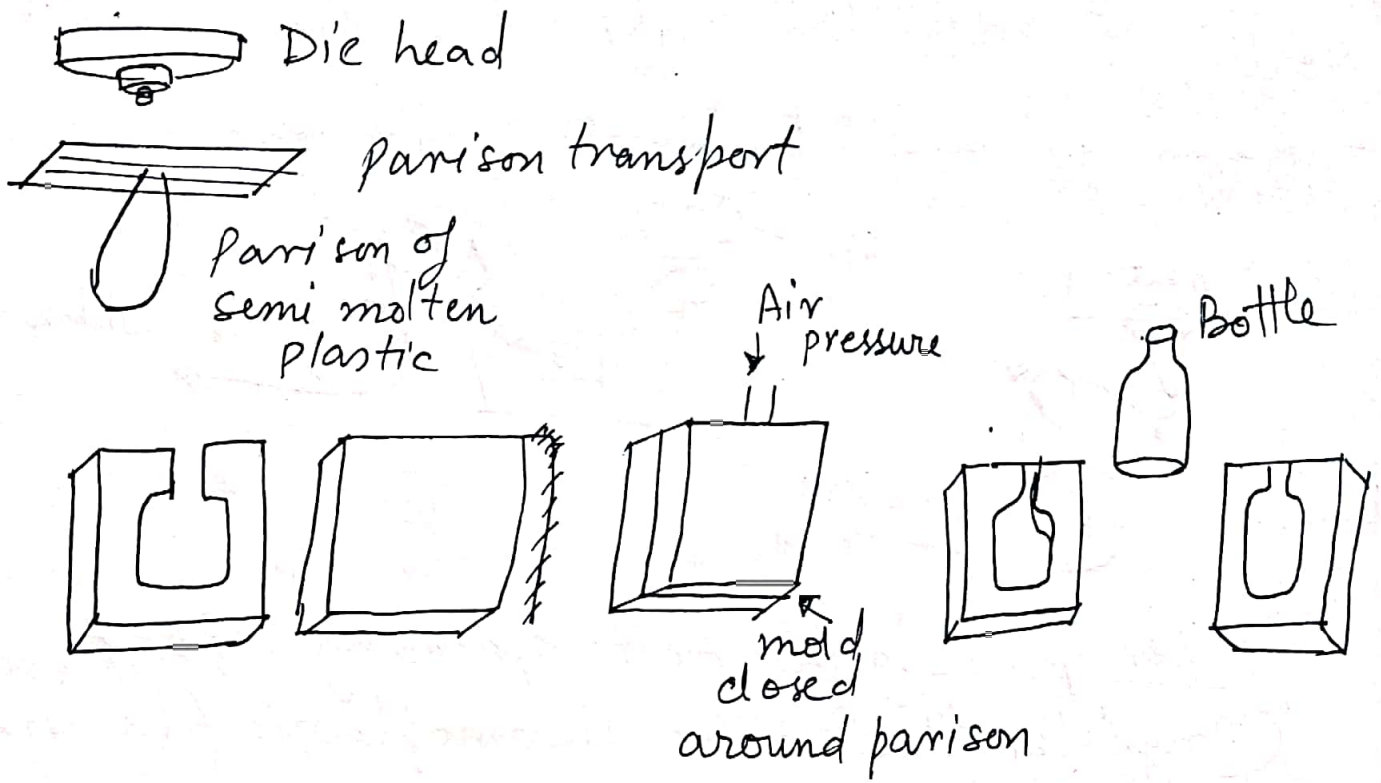 Die head
Parison transport
Parison of
semi molten
plastic
Air
pressure
Bottle
mold
closed
around parison